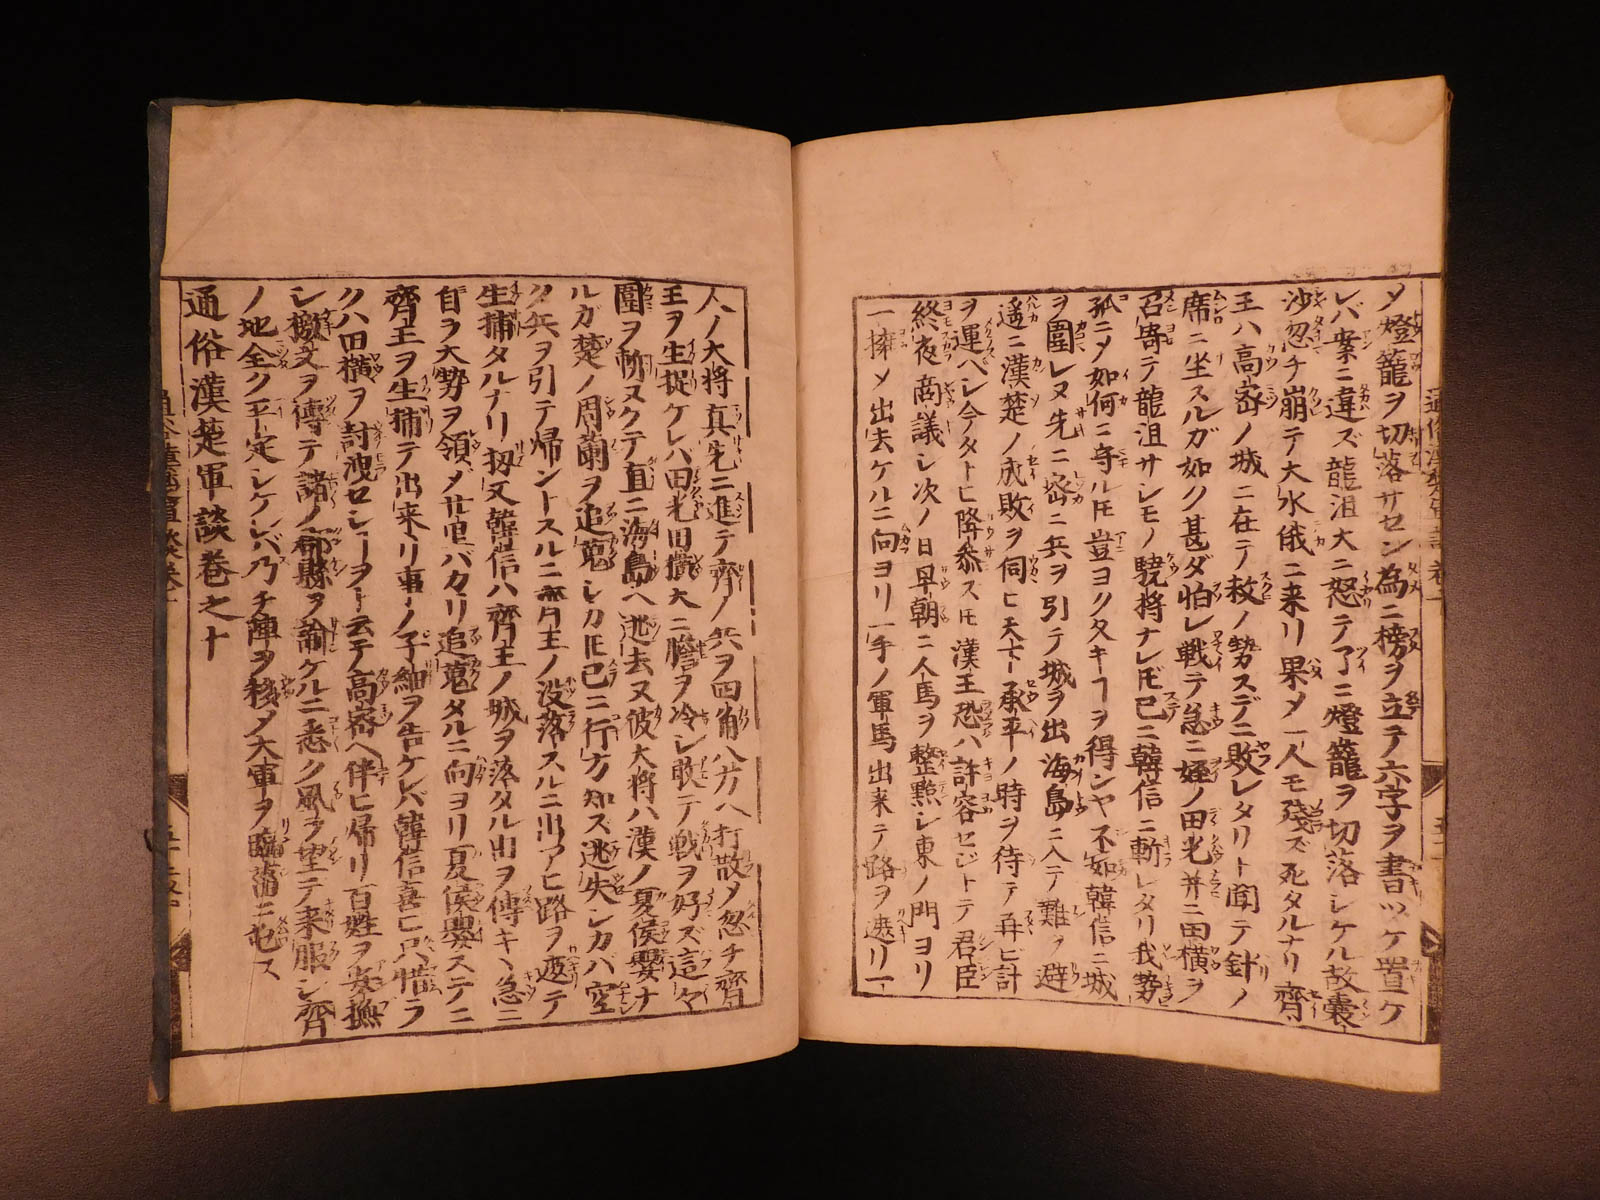 メ燈籠ヲ切落サセン為ニ榜ヲ立テ六字ヲ書ツケ置ケ
レバ案ニ違ズ龍沮大ニ怒テ了ニ燈籠ヲ切落シケル故囊
沙忽チ崩テ大水俄ニ来リ果メ一人モ残ズ死タルナリ齊
王ハ高密ノ城ニ在テ救ノ勢スデニ敗レタリト聞テ針ノ
席ニ坐スルガ如ク甚ダ怕レ戦テ急ニ姪ノ田光并ニ田横ヲ
召寄テ龍沮サシモノ驍将ナレ𪜈已ニ韓信ニ斬レタリ我勢
孤ニメ如何ニ守ル𪜈豈ヨクタキヿヲ得ンヤ不如韓信ニ城
ヲ圍レヌ先ニ密ニ兵ヲ引テ城ヲ出海島ニ入テ難ヲ避
遥ニ漢楚ノ成敗ヲ伺ヒ天下承平ノ時ヲ待テ再ビ計
ヲ運ヘシ今タトヒ降参ス𪜈漢王恐ハ許容セジトテ君臣
終夜商議シ次ノ日早朝ニ人馬ヲ整點シ東ノ門ヨリ
一擁メ出去ケルニ向ヨリ一手ノ軍馬出来テ路ヲ遮リ一
人ノ大将真先ニ進テ齊ノ兵ヲ四角八方ヘ打散メ忽チ齊
王ヲ生捉ケレハ田光田横大ニ膽ヲ冷シ敢テ戦ヲ好ズ這々
圍ヲ斬ヌクテ直ニ海島ヘ逃去又彼大将ハ漢ノ夏侯嬰ナ
ルガ楚ノ周蘭ヲ追蒐シカ𪜈已ニ行方知ズ逃失シカバ空
ク兵ヲ引テ帰ントスルニ齊王ノ没落スルニ出アヒ路ヲ遮テ
生捕タルナリ扨又韓信ハ齊王ノ城ヲ落タル由ヲ傳キヽ急ニ
自ラ大勢ヲ領メ廿里バカリ追蒐タルニ向ヨリ夏侯嬰ステニ
齊王ヲ生捕テ出来リ事ノ子細ヲ告ケレバ韓信喜ビ只惜ラ
クハ田横ヲ討洩セシヿヲト云テ高密ヘ伴ヒ帰リ百姓ヲ安撫
シ檄文ヲ傳テ諸ノ郡縣ヲ諭ケルニ悉ク風ヲ望テ来服シ齊
ノ地全ク平定シケレバ乃チ陣ヲ移メ大軍ヲ臨淄ニ屯ス
通俗漢楚軍談巻之十